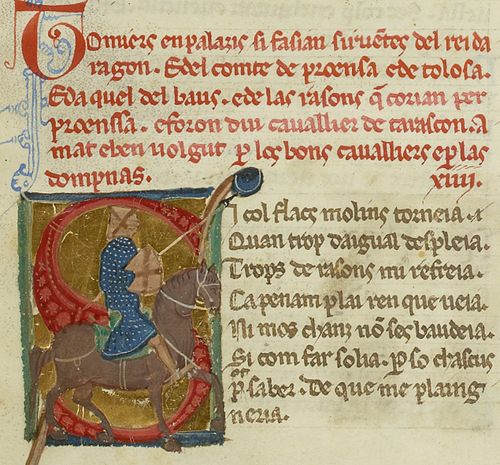 Tomiers en palazis si fasian siruentes del rei da
ragon. Edel comte de proensa e de tolosa.
Eda quel del baus. e de las rasons q̄ corian per
proenssa. e foron dui cauallier de tarascon. A
mat e ben uolgut p los bons caualliers e p las
dompnas. XIIII.
Si col flacs molins torneia. A
Quan trop daigual despleia.
Trops de rasons mi refreia.
Ca penam plai ren que ueia.
Ni mos chanz nō ses baudeia.
Si com far solia. p so chascus
p saber. De que me plaing
neria.